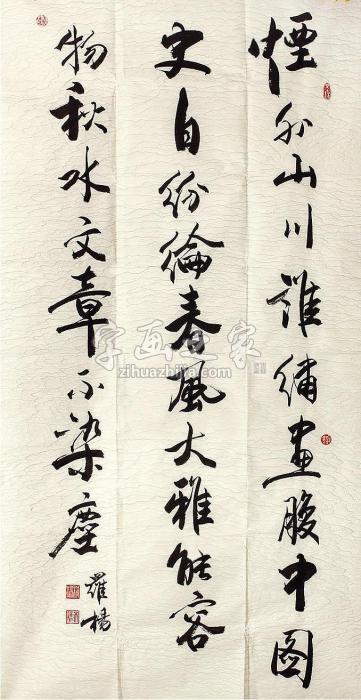 煙外山川誰繡畫腹中圖
史自紛綸春風大雅能容
物秋水文章不染塵
羅楊
字画之家
zihuazhijia.com